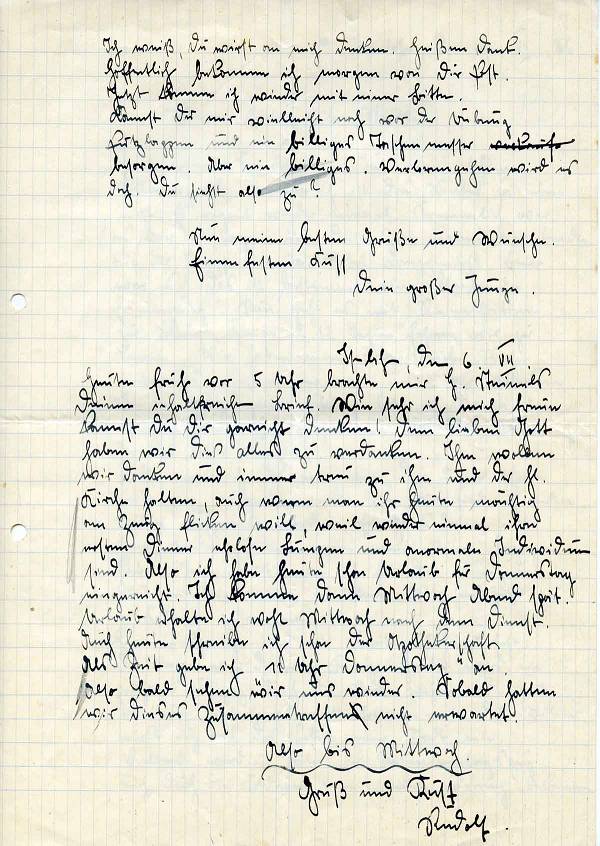 Ich weiß, du wirst an mich denken. Heißen Dank.
Hoffentlich bekomme ich morgen von dir Post.
Jetzt komme ich wieder mit einer Bitte.
Kannst du mir vielleicht noch vor der Übung
Fußlappen und ein billiges Taschenmesser
besorgen. Aber ein billiges. Verlorengehen wird es
doch. Du siehst also zu?
Nun meine besten Grüße und Wünsche.
Einen festen Kuss
Dein großer Junge.
den 6. VII.
Heute früh vor 5 Uhr brachte mir H.
Deinen inhaltreichen Brief. Wie sehr ich mich freue
kannst du dir garnicht denken! Dem lieben Gott
haben wir dies alles zu verdanken. Ihm wollen
wir danken und immer treu zu ihm und der hl.
Kirche halten, auch wenn man ihr heute mächtig
am Zeug flicken will, weil wieder einmal ihre
ersten Diener ehrlose Lumpen und anormale Individuen
sind. Also ich habe heute schon Urlaub für Donnerstag
eingereicht. Ich komme dann Mittwoch Abend spät.
Urlaub erhalte ich wohl Mittwoch nach dem Dienst.
Auch heute schreibe ich schon der Apothekerschaft
Als Zeit gebe ich 11 Uhr Donnerstag an.
Also bald sehen wir uns wieder. Sobald hatten
wir dieses Zusammentreffen nicht erwartet.
Also bis Mittwoch.
Gruß und Kuss
Rudolf.